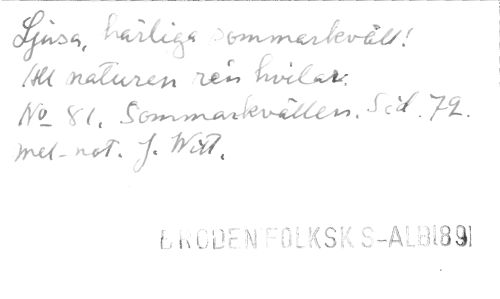 Ljusa, härliga sommarkväll!
All naturen re'n hvilar.
No 81. Sommarkvällen. Sid. 79.
mel-not. J. Witt.
BRODEN FOLKSK S-ALB1891